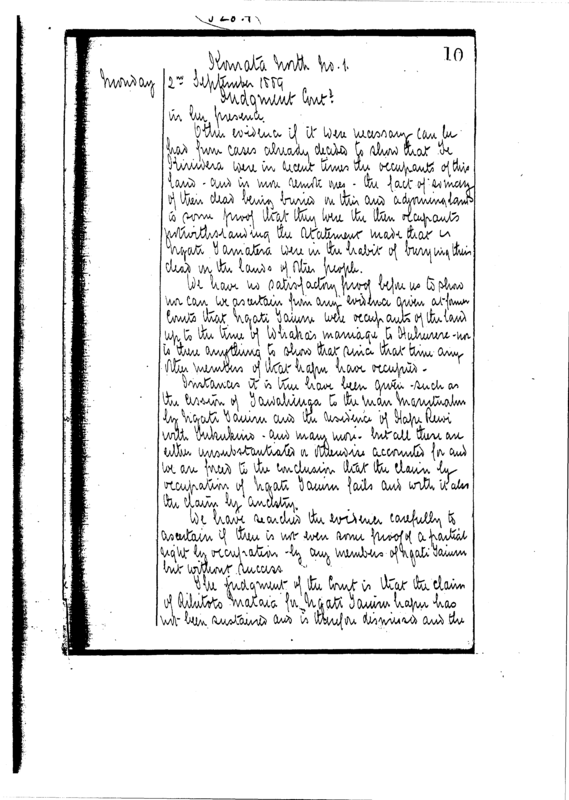 10
Komata North No. 1.
Monday 2nd September 1889
Judgment Contd.
in her presence.
Other evidence if it were necessary can be
had from cases already decided to show that Te
Kiriwera were in recent times the occupants of this
land - and in more remote ones - the fact of so many
of their dead being buried on this and adjoining lands
is some proof that they were the then occupants
notwithstanding the statement made that
Ngati Tamatera were in the habit of burying their
dead on the lands of other people.
We have no satisfactory proof before us to show
nor can we ascertain from any evidence given at former
Courts that Ngati Tauiru were occupants of the land
up to the time of Whaka's marriage to - nor
is there anything to show that since that time any
other members of that hapu have occupied -
Instances it is true have been given - such as
the cession of to the man
by Ngati Tauiru and the residence of Hapi Rewi
with Tukukino - and many more - but all these are
either unsubstantiated or otherwise accounted for and
we are forced to the conclusion that the claim by
occupation of Ngati Tauiru fails and with it also
the claim by ancestry.
We have searched the evidence carefully to
ascertain if there is not even some proof of a partial
right by occupation - by any members of Ngati Tauiru
but without success
The judgment of the Court is that the claim
of Mataia for Ngati Tauiru hapu has
not been sustained and is therefore dismissed and the